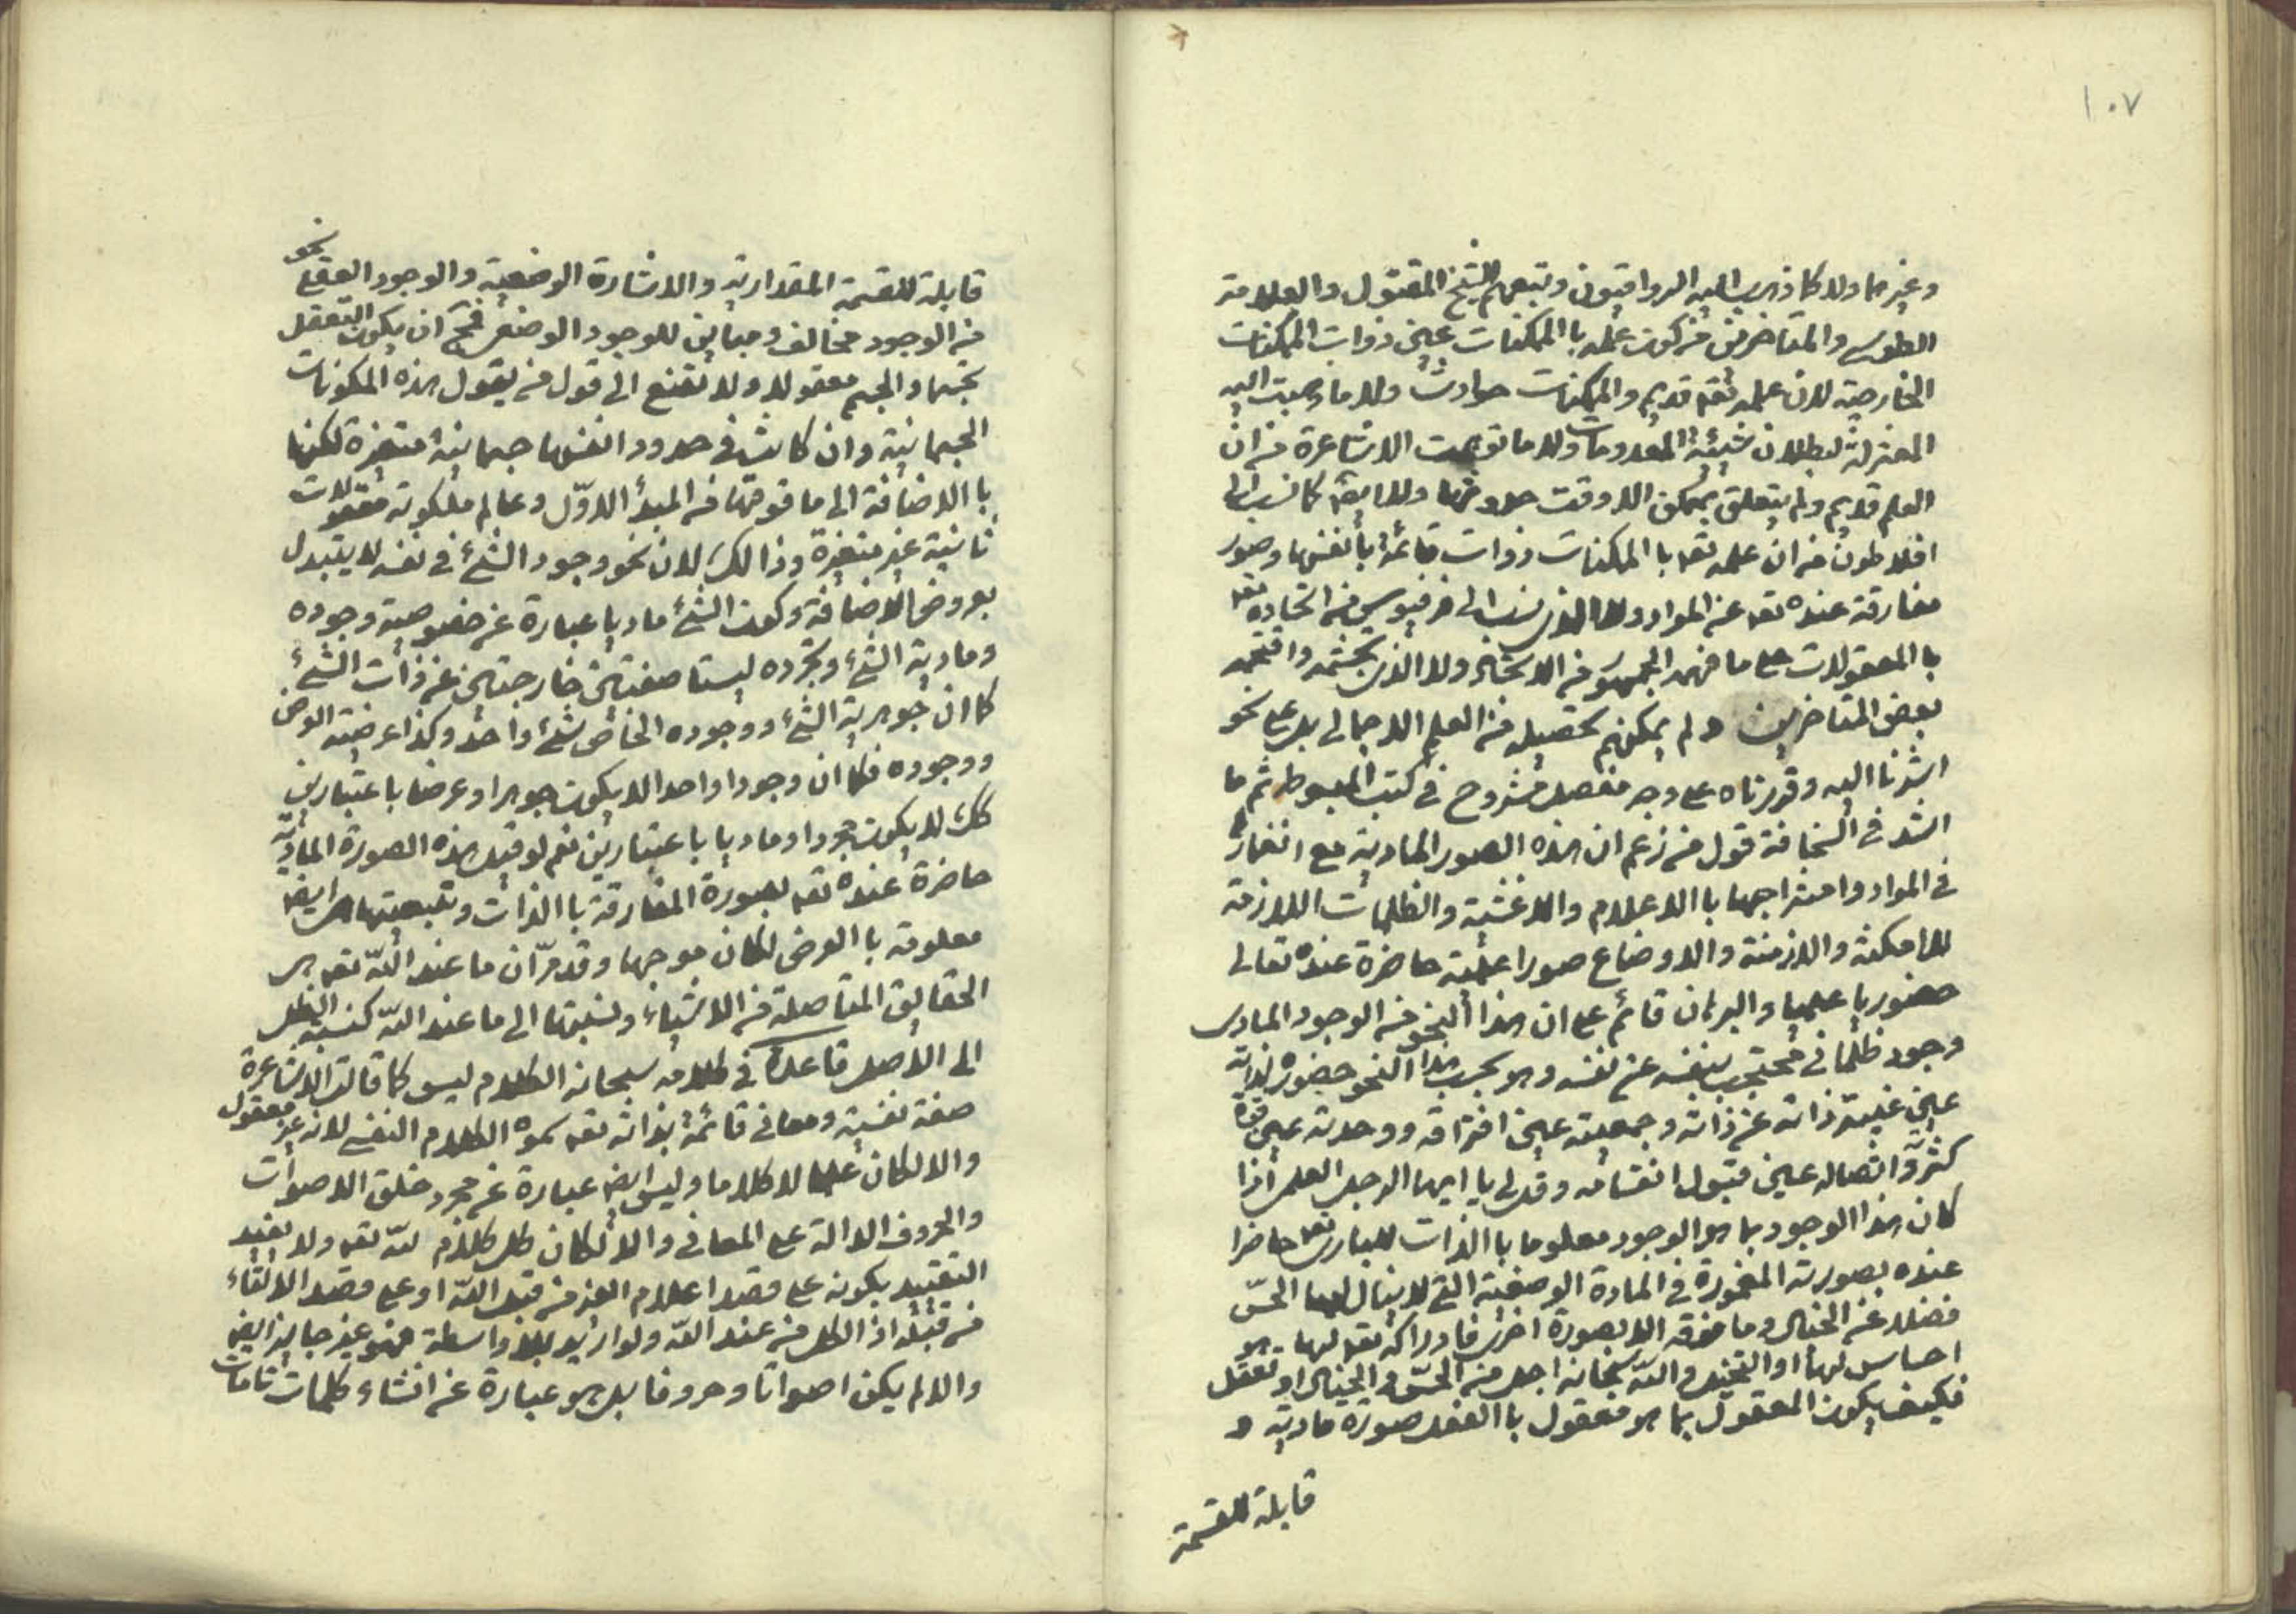 ١٠٧
وغيرهما ولا كما ذهب اليه الرواقيون وتبعهم الشيخ المقتول والعلامة
الطوسي والمتاخرين من كون علمه باالممكنات عين ذوات الممكنات
الخارجية لان علمه تعه قديم والممكنات حوادث ولا ما ذهبت اليه
المعتزلة لبطلان شيئية المعدومات ولا ما توهمت الاشاعرة من ان
العلم قديم ولم يتعلق بممكن الا وقت حدوثها ولا ايضا كما نسب الى
افلاطون من ان علمه تعه باالممكنات ذوات قائمة بأنفسها وصور
مفارقة عنده تعه عن المواد ولا الذي نسب الى فرفيوس من اتحاده تعه
باالمعقولات على ما فهمه الجمهور من الاتحاد ولا الذي تجشمه واقتحمه
بعض المتاخرين ولم يمكنهم تحصيله من العلم الاجمالي بل على نحو
اشرنا اليه وقررناه على وجه مفصل مشروح في كتب المبسوط ثم ما
اشد في السخافة قول من زعم ان هذه الصور المادية مع انغمارها
في المواد وامتزاجها باالاعلام والاغشية والظلمات اللازمة
للامكنة والازمنة والاوضاع صورا علمية حاضرة عنده تعالى
حضوريا علميا والبرهان قائم على ان هذا النحو من الوجود المادى
وجود ظلماني محتجب بنفسه عن نفسه وهو بحسب هذا النحو حضوره لذاته
عين غيبة ذاته عن ذاته وجمعيته عين افتراقه ووحدته عين قوة
كثرة واتصاله عين قبول انقسامه وقل لي يا ايها الرجل العلمي اذا
كان هذا الوجود بما هو الوجود معلوما باالذات للبارى تعه حاضرا
عنده بصورته المغمورة في المادة الوضعية التي لا ينال لها الحسّ
فضلا عن الخيال وما فوقه الا بصورة اخرى فادراكه تعه لها هو
احساس لها او التخيل والله سبحانه اجل من الحسّ والخيال او تعقل
فكيف يكون المعقول بما هو معقول باالفعل صورة مادية و
قابلة للقسمة
قابلة للقسمة المقدارية والاشارة الوضعية والوجود العقلي نحو
من الوجود مخالف ومباين للوجود الوضعي فمح ان يكون التعقل
تجسما والجسم معقولا ولا تقنع الى قول من يقول هذه المكونات
الجسمانية وان كانت في حدود انفسها جسمانية متغيرة لكنها
باالاضافة الى ما فوقها من المبدأ الاوّل وعالم ملكوته معقولات
ثانية غير متغيرة وذالك لان نحو وجود الشئ في نفسه لا يتبدل
بعروض الاضافة وكون الشئ ماديا عبارة عن خصوصية وجوده
ومادية الشئ وتجرده ليستا صفتين خارجتين عن ذات الشئ
كما ان جوهرية الشئ ووجوده الخاص شئ واحد وكذا عرضية العرض
ووجوده فكما ان وجودا واحدا لا يكون جوهرا وعرضا باعتبارين
كك لا يكون مجردا وماديا باعتبارين نعم لو قيل هذه الصورة الماديّة
حاضرة عنده تعه بصورة المفارقة باالذات وتبعيتها هى ايضا
معلومة باالعرض لكان موجها وقد مرّ ان ما عند الله تعه هى
الحقايق المتاصلة من الاشياء ونسبتها الى ما عند الله كنسبة الظل
الى الاصل قاعدة في كلامه سبحانه الكلام ليس كما قالت الاشاعرة
صفة نفسية ومعاني قائمة بذاته تعه سموه الكلام النفسي لانه غير معقول
والا لكان علما لا كلاما وليس ايضا عبارة عن مجرد خلق الاصوات
والحروف الدالة على المعاني والا لكان كل كلام لله تعه ولا يفيد
التقييد بكونه على قصد اعلام الغير من قبل الله او على قصد الالقاء
من قبله اذ الكل من عند الله ولو اريد بلا واسطة فهو غير جايز ايضا
والا لم يكن اصواتا وحروفا بل هو عبارة عن انشاء كلمات تامات